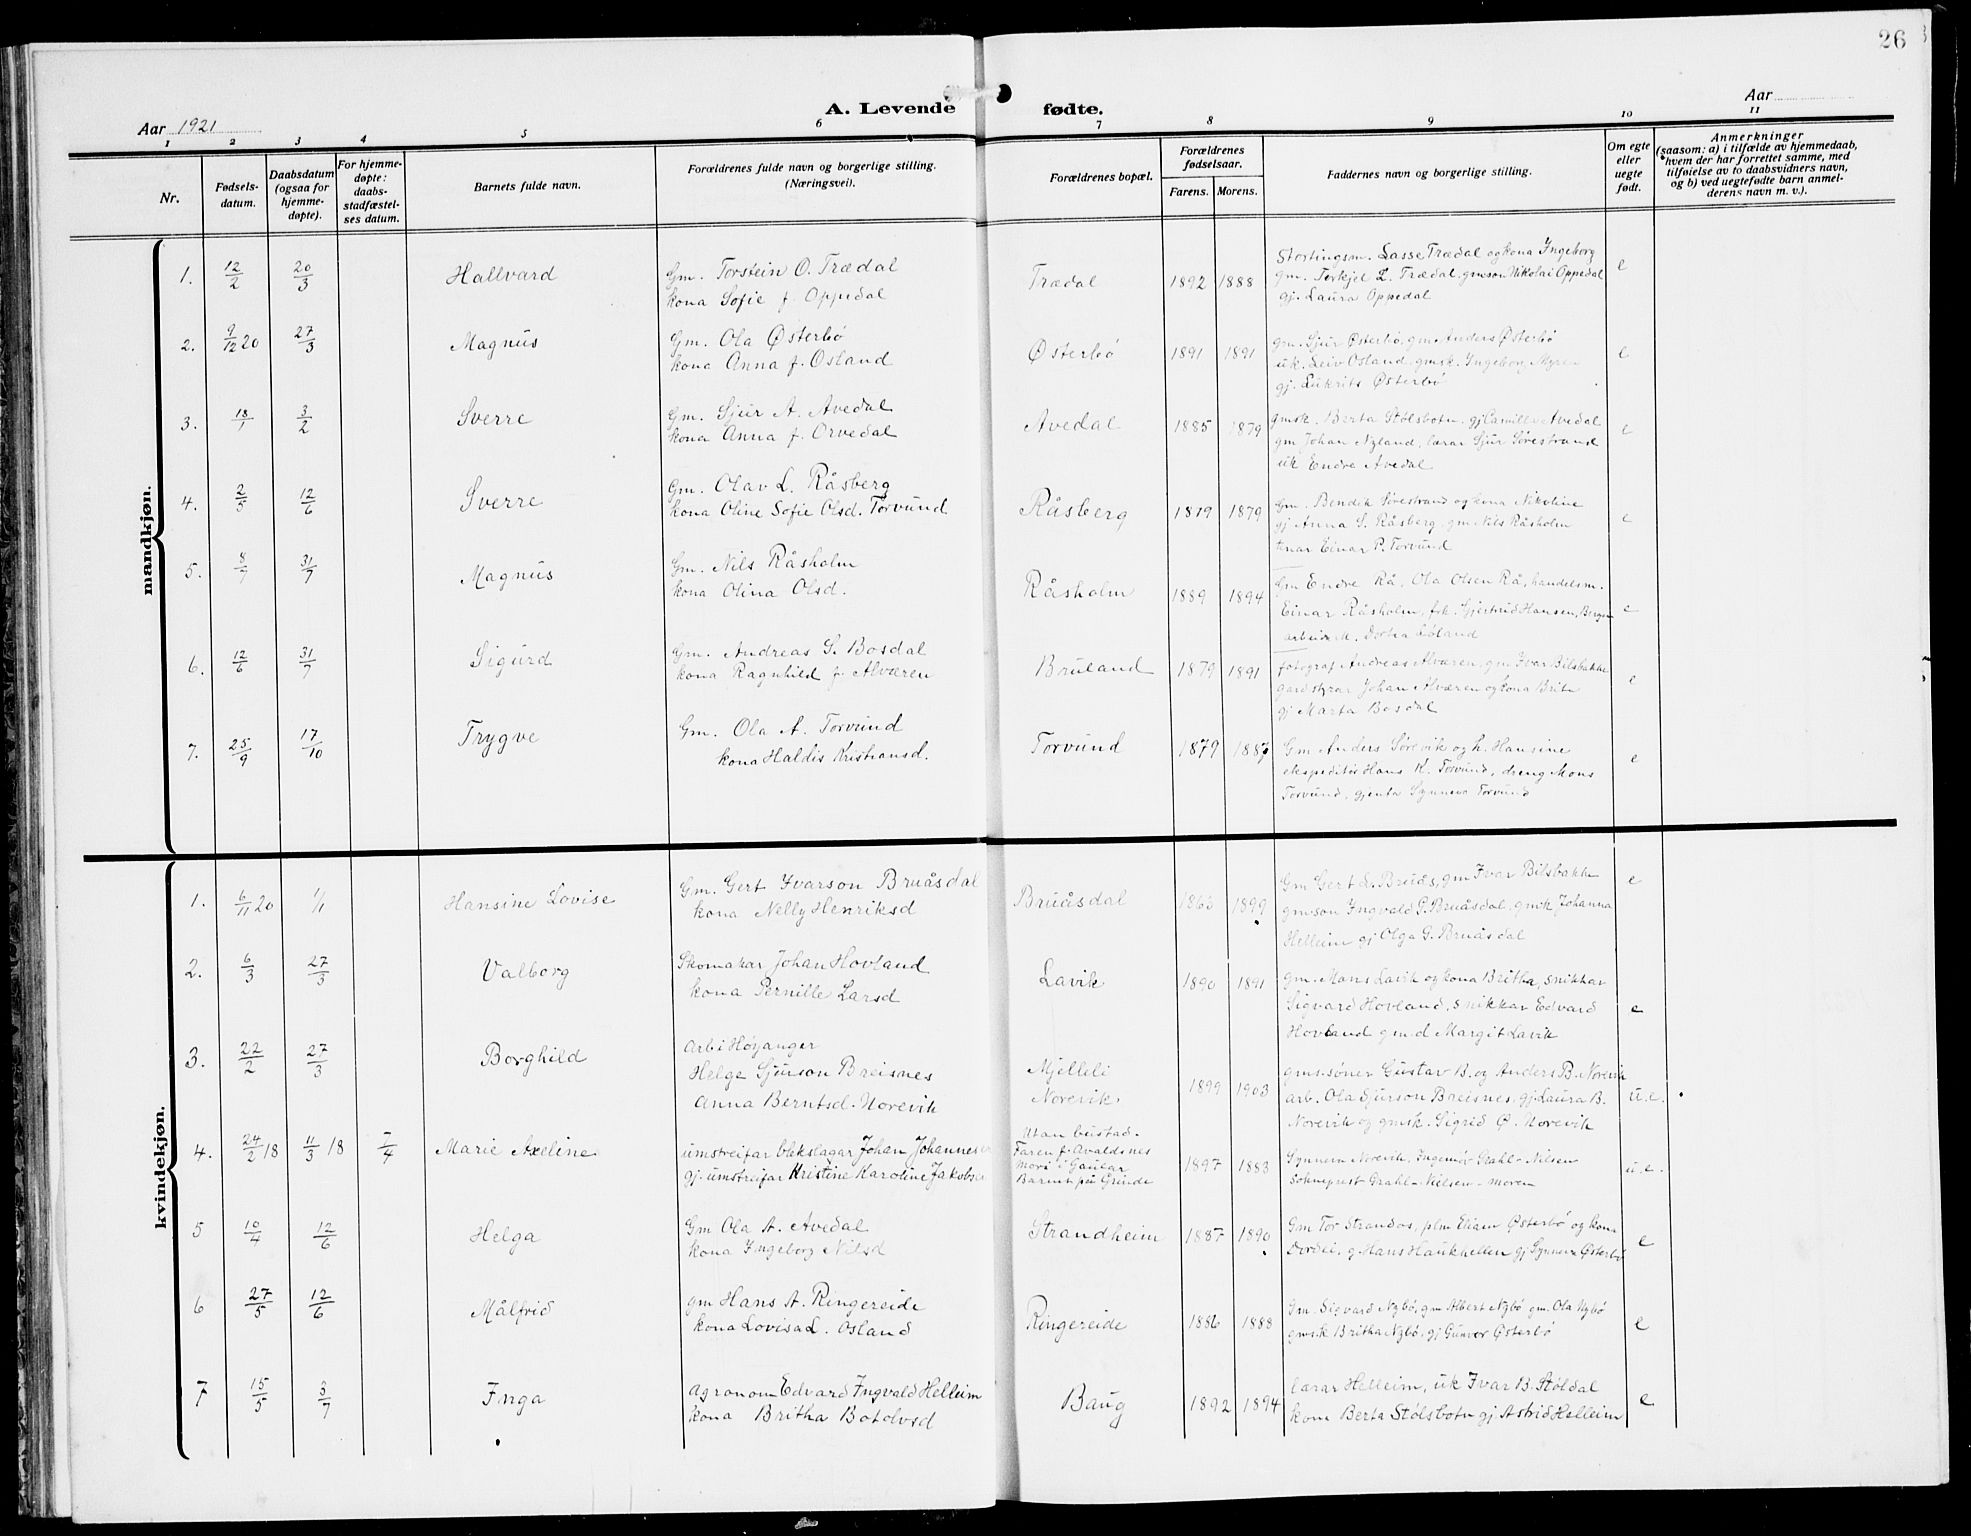 26
A. Levende fødte.
Aar 1921
Aar
1 2 3 4 5 6 7 8 9 10 11
Nr.
Fødsels-
datum.
Daabsdatum
(ogsaa for
hjemme-
døpte).
For hjemme-
døpte:
daabs-
stadfæstel-
ses datum.
Barnets fulde navn.
Forældrenes fulde navn og borgerlige stilling.
(Næringsvei).
Forældrenes bopæl.
Forældrenes
fødselsaar.
Farens. Morens.
Faddernes navn og borgerlige stilling.
Om egte
eller
uegte
født.
Anmerkninger
(saasom: a) i tilfælde av hjemmedaab,
hvem der har forrettet samme, med
tilføielse av to daabsvidners navn,
og b) ved uegtefødte barn anmel-
derens navn m. v.).
mandkjøn.
1. 12/2 20/3 Hallvard
Gm. Torstein O. Trædal
kona Sofie f. Oppedal
Trædal 1892 1888
Stortingsm. Lasse Trædal og kona Ingeborg
gm. Terkjel L. Trædal, gmson Nikolai Oppedal
gj. Laura Oppedal
e
2. 9/12 20 27/3 Magnus
Gm. Ola Østerbø
kona Anna f. Osland
Østerbø 1891 1891
gm. Sjur Østerbø, gm. Anders Østerbø
uk. Leiv Osland, gmsk. Ingeborg Myren
gj. Lukrits Østerbø
e
3. 18/1 3/2 Sverre
Gm. Sjur A. Avedal
kona Anna f. Orvedal
Avedal 1885 1879
gmsk. Berta Stølsbotn, gj Camilla Avedal
gm Johan Nyland, lærar Sjur Sørestrand
uk Endre Avedal
e
4. 2/5 12/6 Sverre
Gm. Olav L. Råsberg
kona Oline Sofie Olsd. Torvund
Råsberg 1879 1879
Gm. Bendik Sørestrand og kona Nikoline
gj Anna S. Råsberg, gm Nils Råsholm
tenar Einar P. Torvund
e
5. 8/7 31/7 Magnus
Gm. Nils Råsholm
kona Olina Olsd.
Råsholm 1889 1894
Gm Endre Rå, Ola Olsen Rå, handelsm.
Einar Råsholm, frk. Gjertrud Hansen, Bergen
arbeidar M. Dortea
e
6. 12/6 31/7 Sigurd
Gm. Andreas S. Bosdal
kona Ragnhild f. Alværen
Bruland 1879 1891
fotograf Andreas Alværen, gm Ivar Bilsbakke
gardstyrar Johan Alværen og kona Brite
gj Marta Bosdal
e
7. 25/9 17/10 Trygve
Gm. Ola A. Torvund
kona Haldis Kristiansd.
Torvund 1879 1887
Gm Anders Sørevik og k. Hansine
ekspeditør Hans K. Torvund, dreng Mons
Torvund, gjenta Synneva Torvund
e
kvindekjøn.
1. 6/11 20 1/1 Hansine Lovise
Gm. Gert Ivarson Bruåsdal
kona Nelly Henriksd
Bruåsdal 1863 1899
Gm Gert L. Bruås, gm Ivar Bilsbakke
gmson Ingvald G. Bruåsdal, gmsk Johanna
Helleim gj Olga G. Bruåsdal
e
2. 6/3 27/3 Valborg
Skomakar Johan Hovland
kona Pernille Larsd
Lavik 1890 1891
gm. Mons Lavik og kona Britha, snikkar
Sigvard Hovland, snikkar Edvard
Hovland gm.d Margit Lavik
e
3. 22/2 27/3 Borghild
Arb i Høyanger
Helge Sjurson Breisnes
Anna Berntsd. Norevik
Mjelleli
Norevik 1899 1903
gms.søner Gustav B. og Anders B. Norevik
arb. Ola Sjurson Breisnes, gj Laura B.
Norevik og gmsk. Sigrid Ø. Norevik
u.e.
4. 24/2 18 11/3 18 7/4 Marie Axeline
umstreifar blekslagar Johan Johannesen
gj. umstreifar Kristine Karoline Jakobsen
Utan bustad.
Faren f. Avaldsnes
Mori i Gaular
Barnet på Grinde
1897 1883
Synneva Norevik, Ingemor Grahl-Nielsen
Sokneprest Grahl-Nielsen - moren
u.e.
5 10/4 12/6 Helga
Gm Ola A. Avedal
kona Ingeborg Nilsd
Strandheim 1887 1890
Gm Tor Strandos, plm Eliam Østerbø og kona
Dordei, g. Hans Haukhellen gj Synneva Østerbø
e
6 27/5 12/6 Målfrid
gm Hans A. Ringereide
kona Lovisa L. Osland
Ringereide 1886 1888
Gm. Sigvard Nybø, gm Albert Nybø gm. Ola Nybø
gmsk Britha Nybø, gj Gunvor Østerbø
e
7 15/5 3/7 Inga
Agronom Edvard Ingvald Helleim
kona Britha Botolvsd
Baug 1892 1894
lærar Helleim, uk Ivar B. Støldal
kona Berta Stølsbotn gj. Astrid Helleim
e